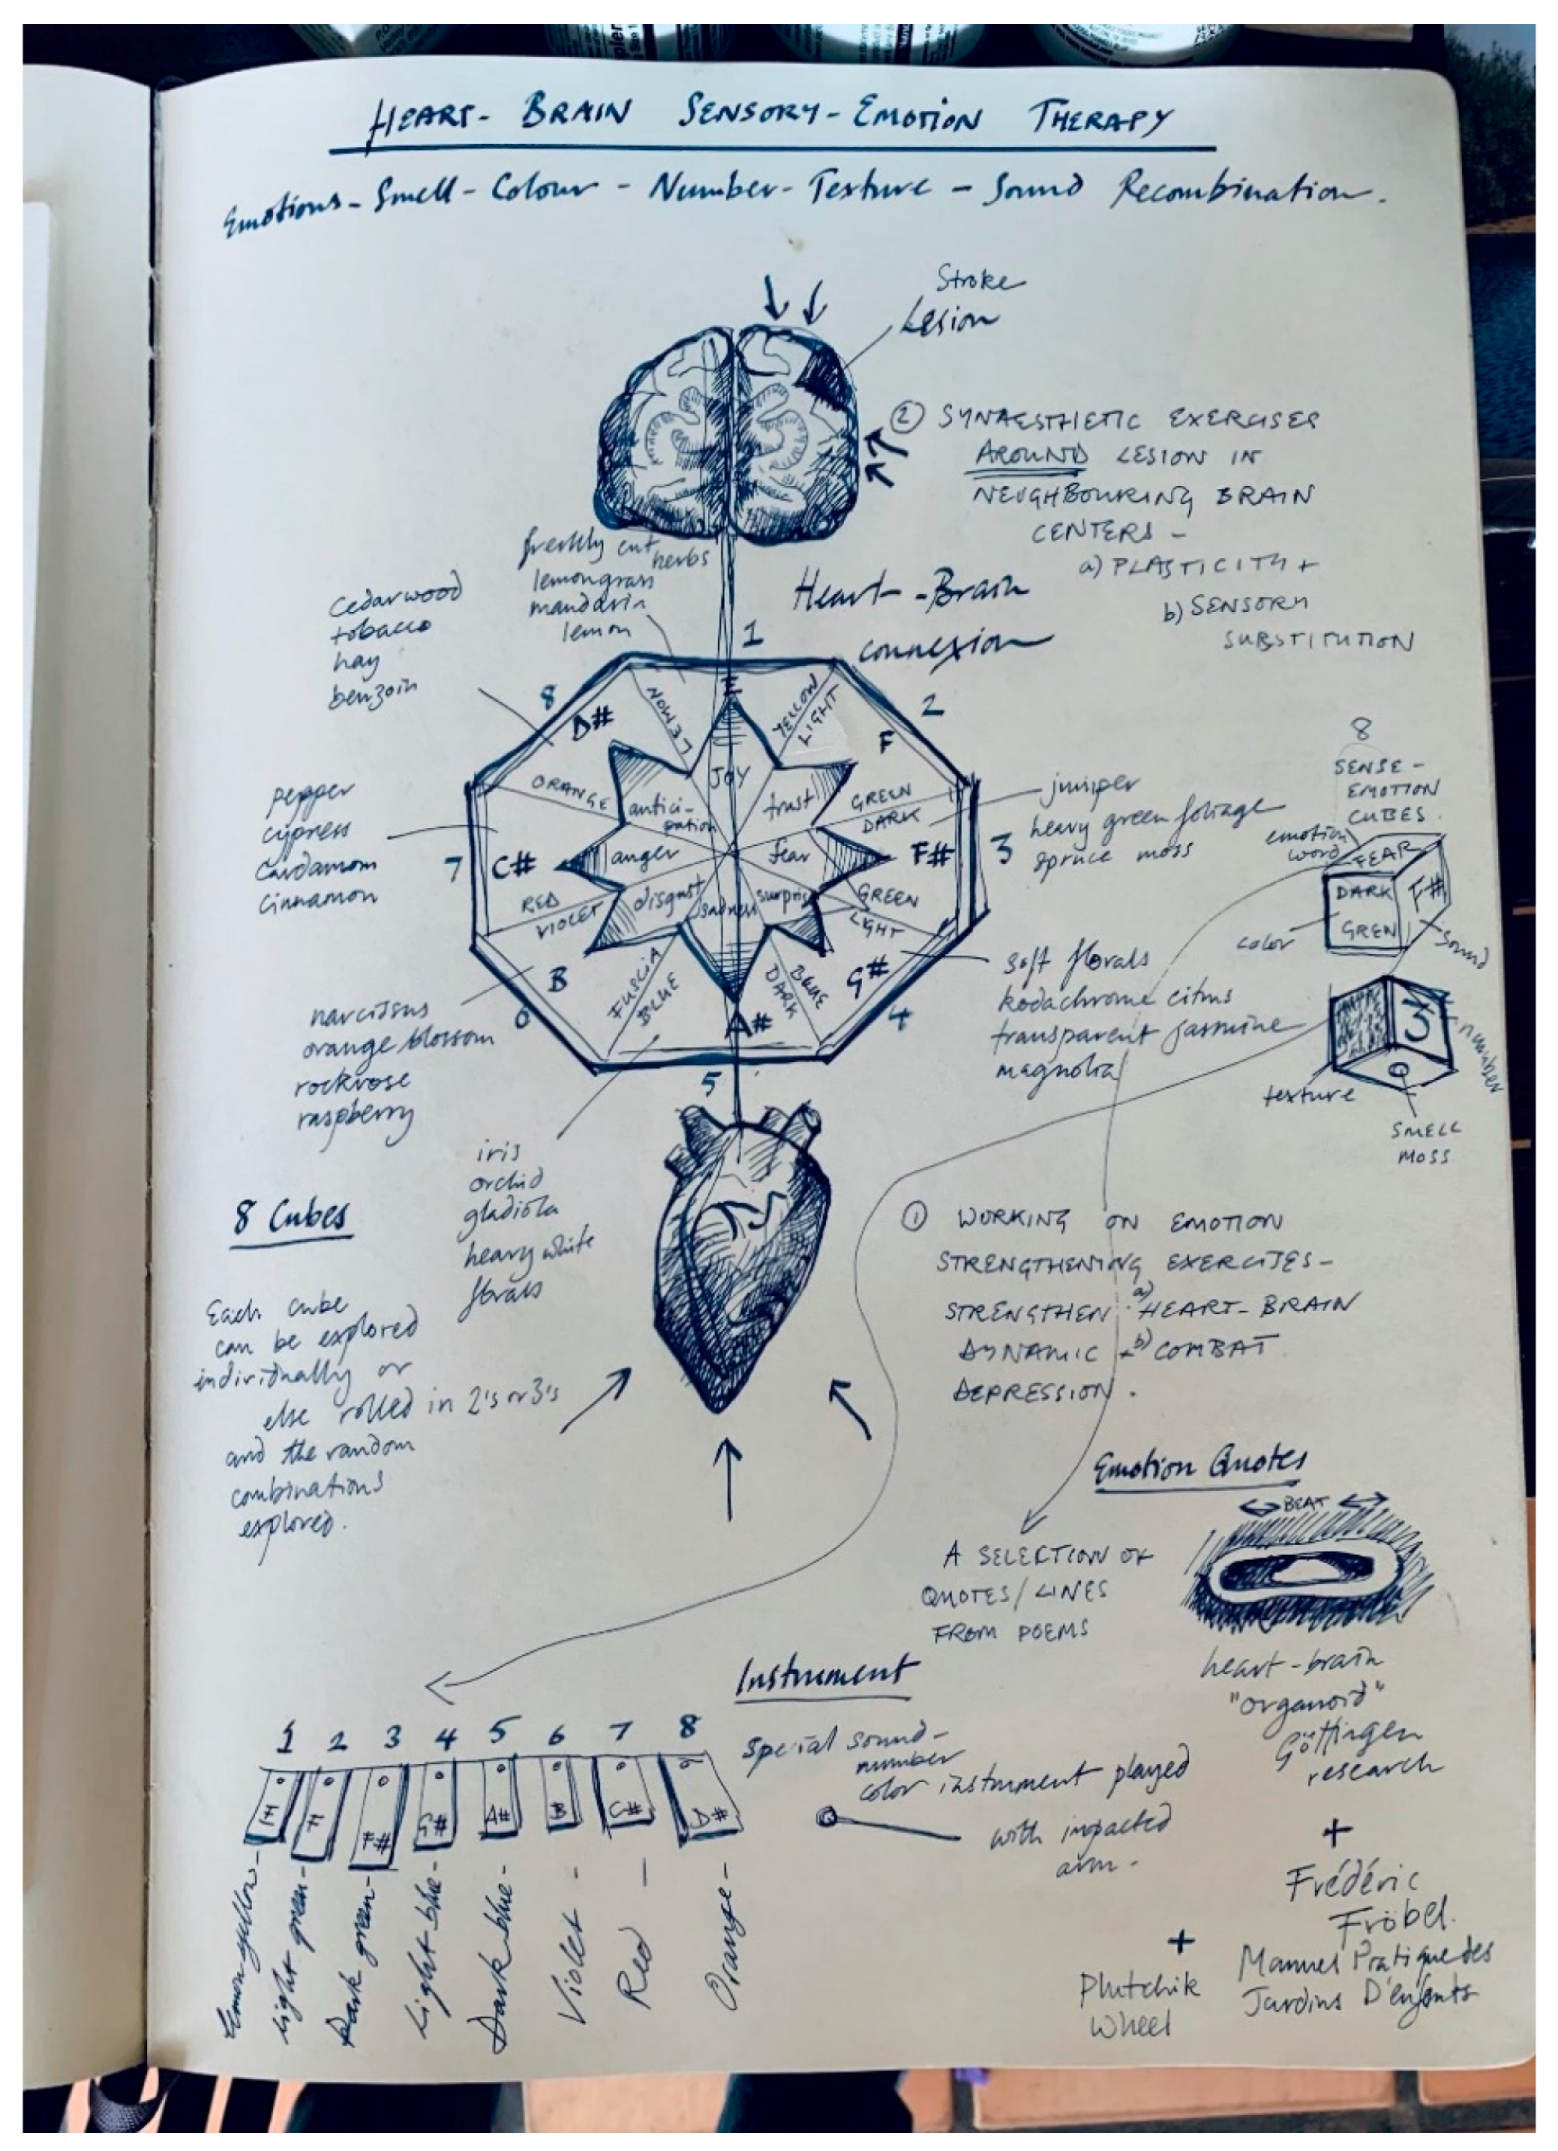 HEART-BRAIN SENSORY-EMOTION THERAPY
Emotions-Smell-Colour-Number-Texture-Sound Recombination.
Stroke
Lesion
② SYNAESTHETIC EXERCISES
AROUND LESION IN
NEUGHBOURING BRAIN
CENTERS -
a) PLASTICITY +
b) SENSORY
SUBSTITUTION
freshly cut herbs
lemongrass
mandarin
lemon
Cedarwood
tobacco
hay
benzoin
Heart-Brain
connexion
1
2
3
4
5
6
7
8
E
F
F#
G#
A#
B
C#
D#
LEMON
YELLOW
LIGHT
GREEN
DARK
GREEN
LIGHT
BLUE
DARK
BLUE
FUSCIA
VIOLET
RED
ORANGE
JOY
trust
fear
surpris
sadness
disgust
anger
antici-
pation
pepper
cypress
Cardamom
Cinnamon
juniper
heavy green foliage
spruce moss
8
SENSE-
EMOTION
CUBES
emotion
word
FEAR
DARK
GREN
F#
color
sound
3
number
texture
SMELL
MOSS
soft florals
kodachrome citrus
transparent jasmine
magnolia
narcissus
orange blossom
rockrose
raspberry
iris
orchid
gladiola
heavy white
florals
8 Cubes
Each cube
can be explored
individually or
else rolled in 2's or 3's
and the random
combinations
explored.
① WORKING ON EMOTION
STRENGTHENING EXERCISES-
STRENGTHEN a) HEART-BRAIN
DYNAMIC + b) COMBAT
DEPRESSION.
Emotion Quotes
BEAT
A SELECTION OF
QUOTES/LINES
FROM POEMS
heart-brain
"organoid"
Göttingen
research
Instrument
Special sound-
number
color instrument played
with impacted
arm-
1 2 3 4 5 6 7 8
E F F# G# A# B C# D#
Lemon yellow-
Light green-
Dark green-
Light blue-
Dark blue-
Violet -
Red -
Orange-
+
Frédéric
Fröbel.
Manuel Pratique des
Jardins D'enfants
+
Plutchik
Wheel